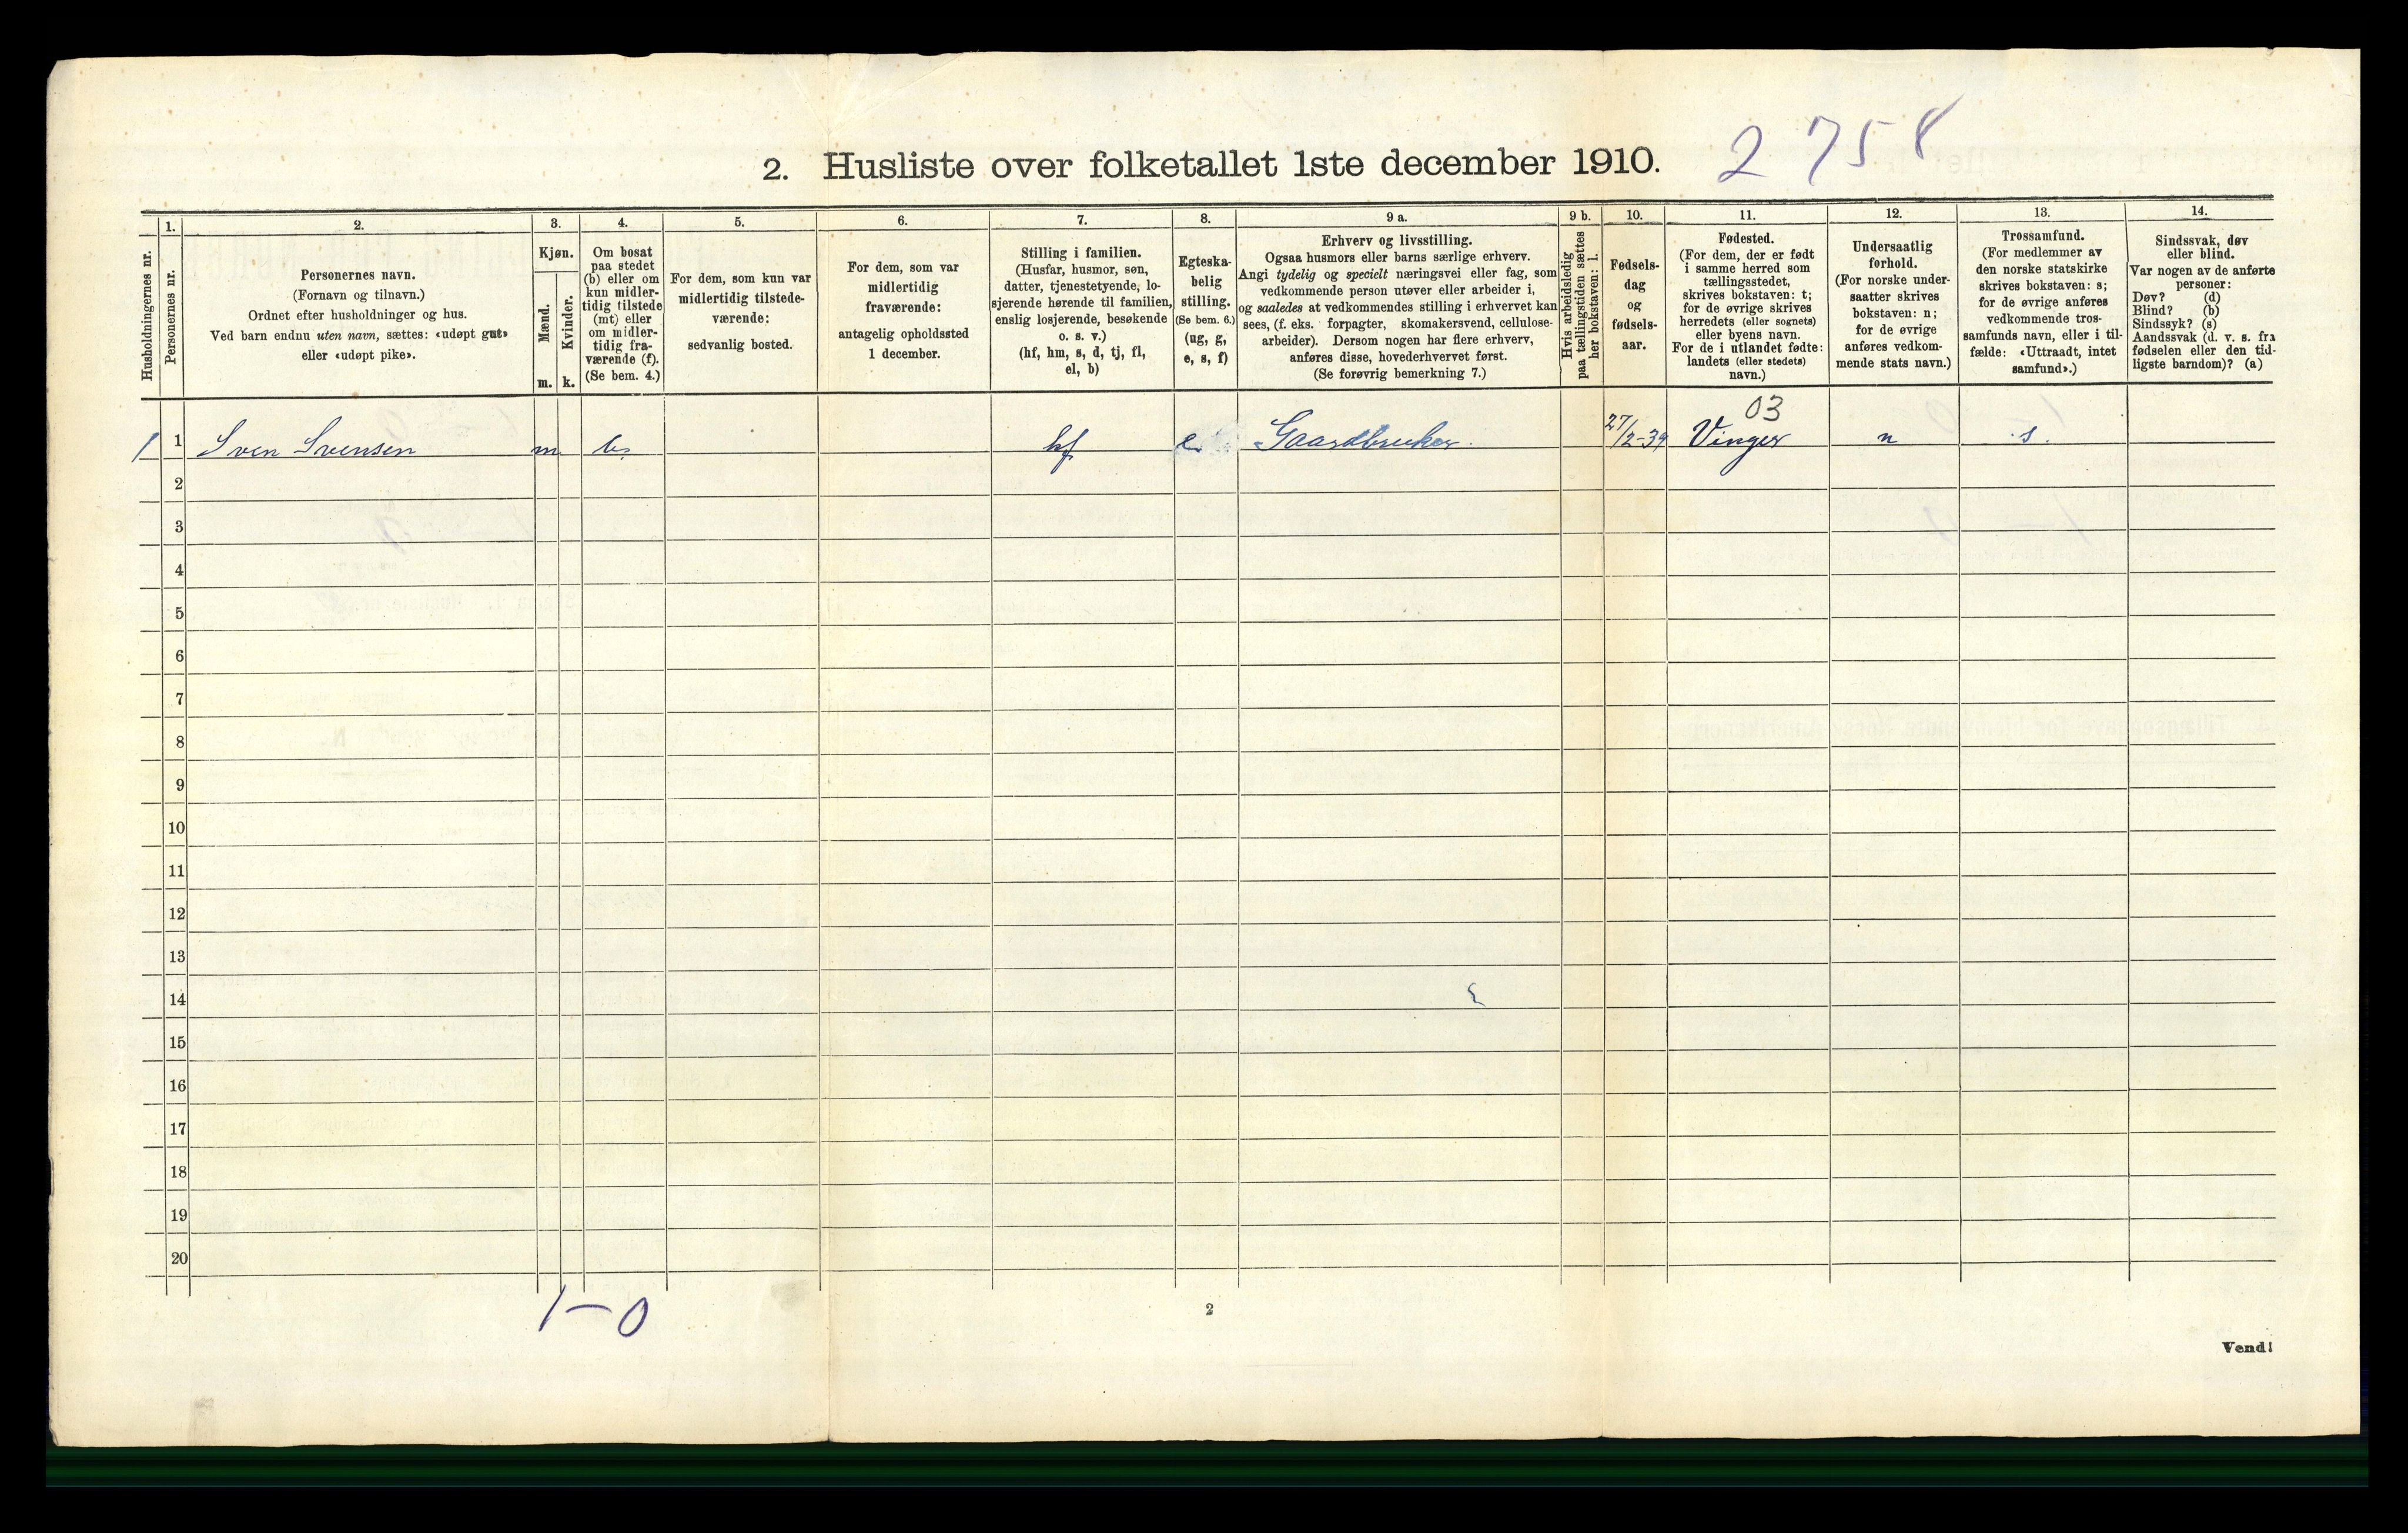 2. Husliste over folketallet 1ste december 1910. 2758
Husholdningernes nr.
1.
Personernes nr.
2.
Personernes navn.
(Fornavn og tilnavn.)
Ordnet efter husholdninger og hus.
Ved barn endnu uten navn, sættes: «udøpt gut»
eller «udøpt pike».
3.
Kjøn.
Mænd.
m.
Kvinder.
k.
4.
Om bosat
paa stedet
(b) eller om
kun midler-
tidig tilstede
(mt) eller
om midler-
tidig fra-
værende (f).
(Se bem. 4.)
5.
For dem, som kun var
midlertidig tilstede-
værende:
sedvanlig bosted.
6.
For dem, som var
midlertidig
fraværende:
antagelig opholdssted
1 december.
7.
Stilling i familien.
(Husfar, husmor, søn,
datter, tjenestetyende, lo-
sjerende hørende til familien,
enslig losjerende, besøkende
o. s. v.)
(hf, hm, s, d, tj, fl,
el, b)
8.
Egteska-
belig
stilling.
(Se bem. 6.)
(ug, g,
e, s, f)
9 a.
Erhverv og livsstilling.
Ogsaa husmors eller barns særlige erhverv.
Angi tydelig og specielt næringsvei eller fag, som
vedkommende person utøver eller arbeider i,
og saaledes at vedkommendes stilling i erhvervet kan
sees, (f. eks. forpagter, skomakersvend, cellulose-
arbeider). Dersom nogen har flere erhverv,
anføres disse, hovederhvervet først.
(Se forøvrig bemerkning 7.)
9 b.
Hvis arbeidsledig
paa tællingstiden sættes
her bokstaven: l.
10.
Fødsels-
dag
og
fødsels-
aar.
11.
Fødested.
(For dem, der er født
i samme herred som
tællingsstedet,
skrives bokstaven: t;
for de øvrige skrives
herredets (eller sognets)
eller byens navn.
For de i utlandet fødte:
landets (eller stedets)
navn.)
12.
Undersaatlig
forhold.
(For norske under-
saatter skrives
bokstaven: n;
for de øvrige
anføres vedkom-
mende stats navn.)
13.
Trossamfund.
(For medlemmer av
den norske statskirke
skrives bokstaven: s;
for de øvrige anføres
vedkommende tros-
samfunds navn, eller i til-
fælde: «Uttraadt, intet
samfund».)
14.
Sindssvak, døv
eller blind.
Var nogen av de anførte
personer:
Døv? (d)
Blind? (b)
Sindssyk? (s)
Aandssvak (d. v. s. fra
fødselen eller den tid-
ligste barndom)? (a)
03
1 1 Sven Svensen m b hf e Gaardbruker 27/2-39 Vinger n s.
2
3
4
5
6
7
8
9
10
11
12
13
14
15
16
17
18
19
20
1-0
2
Vend!